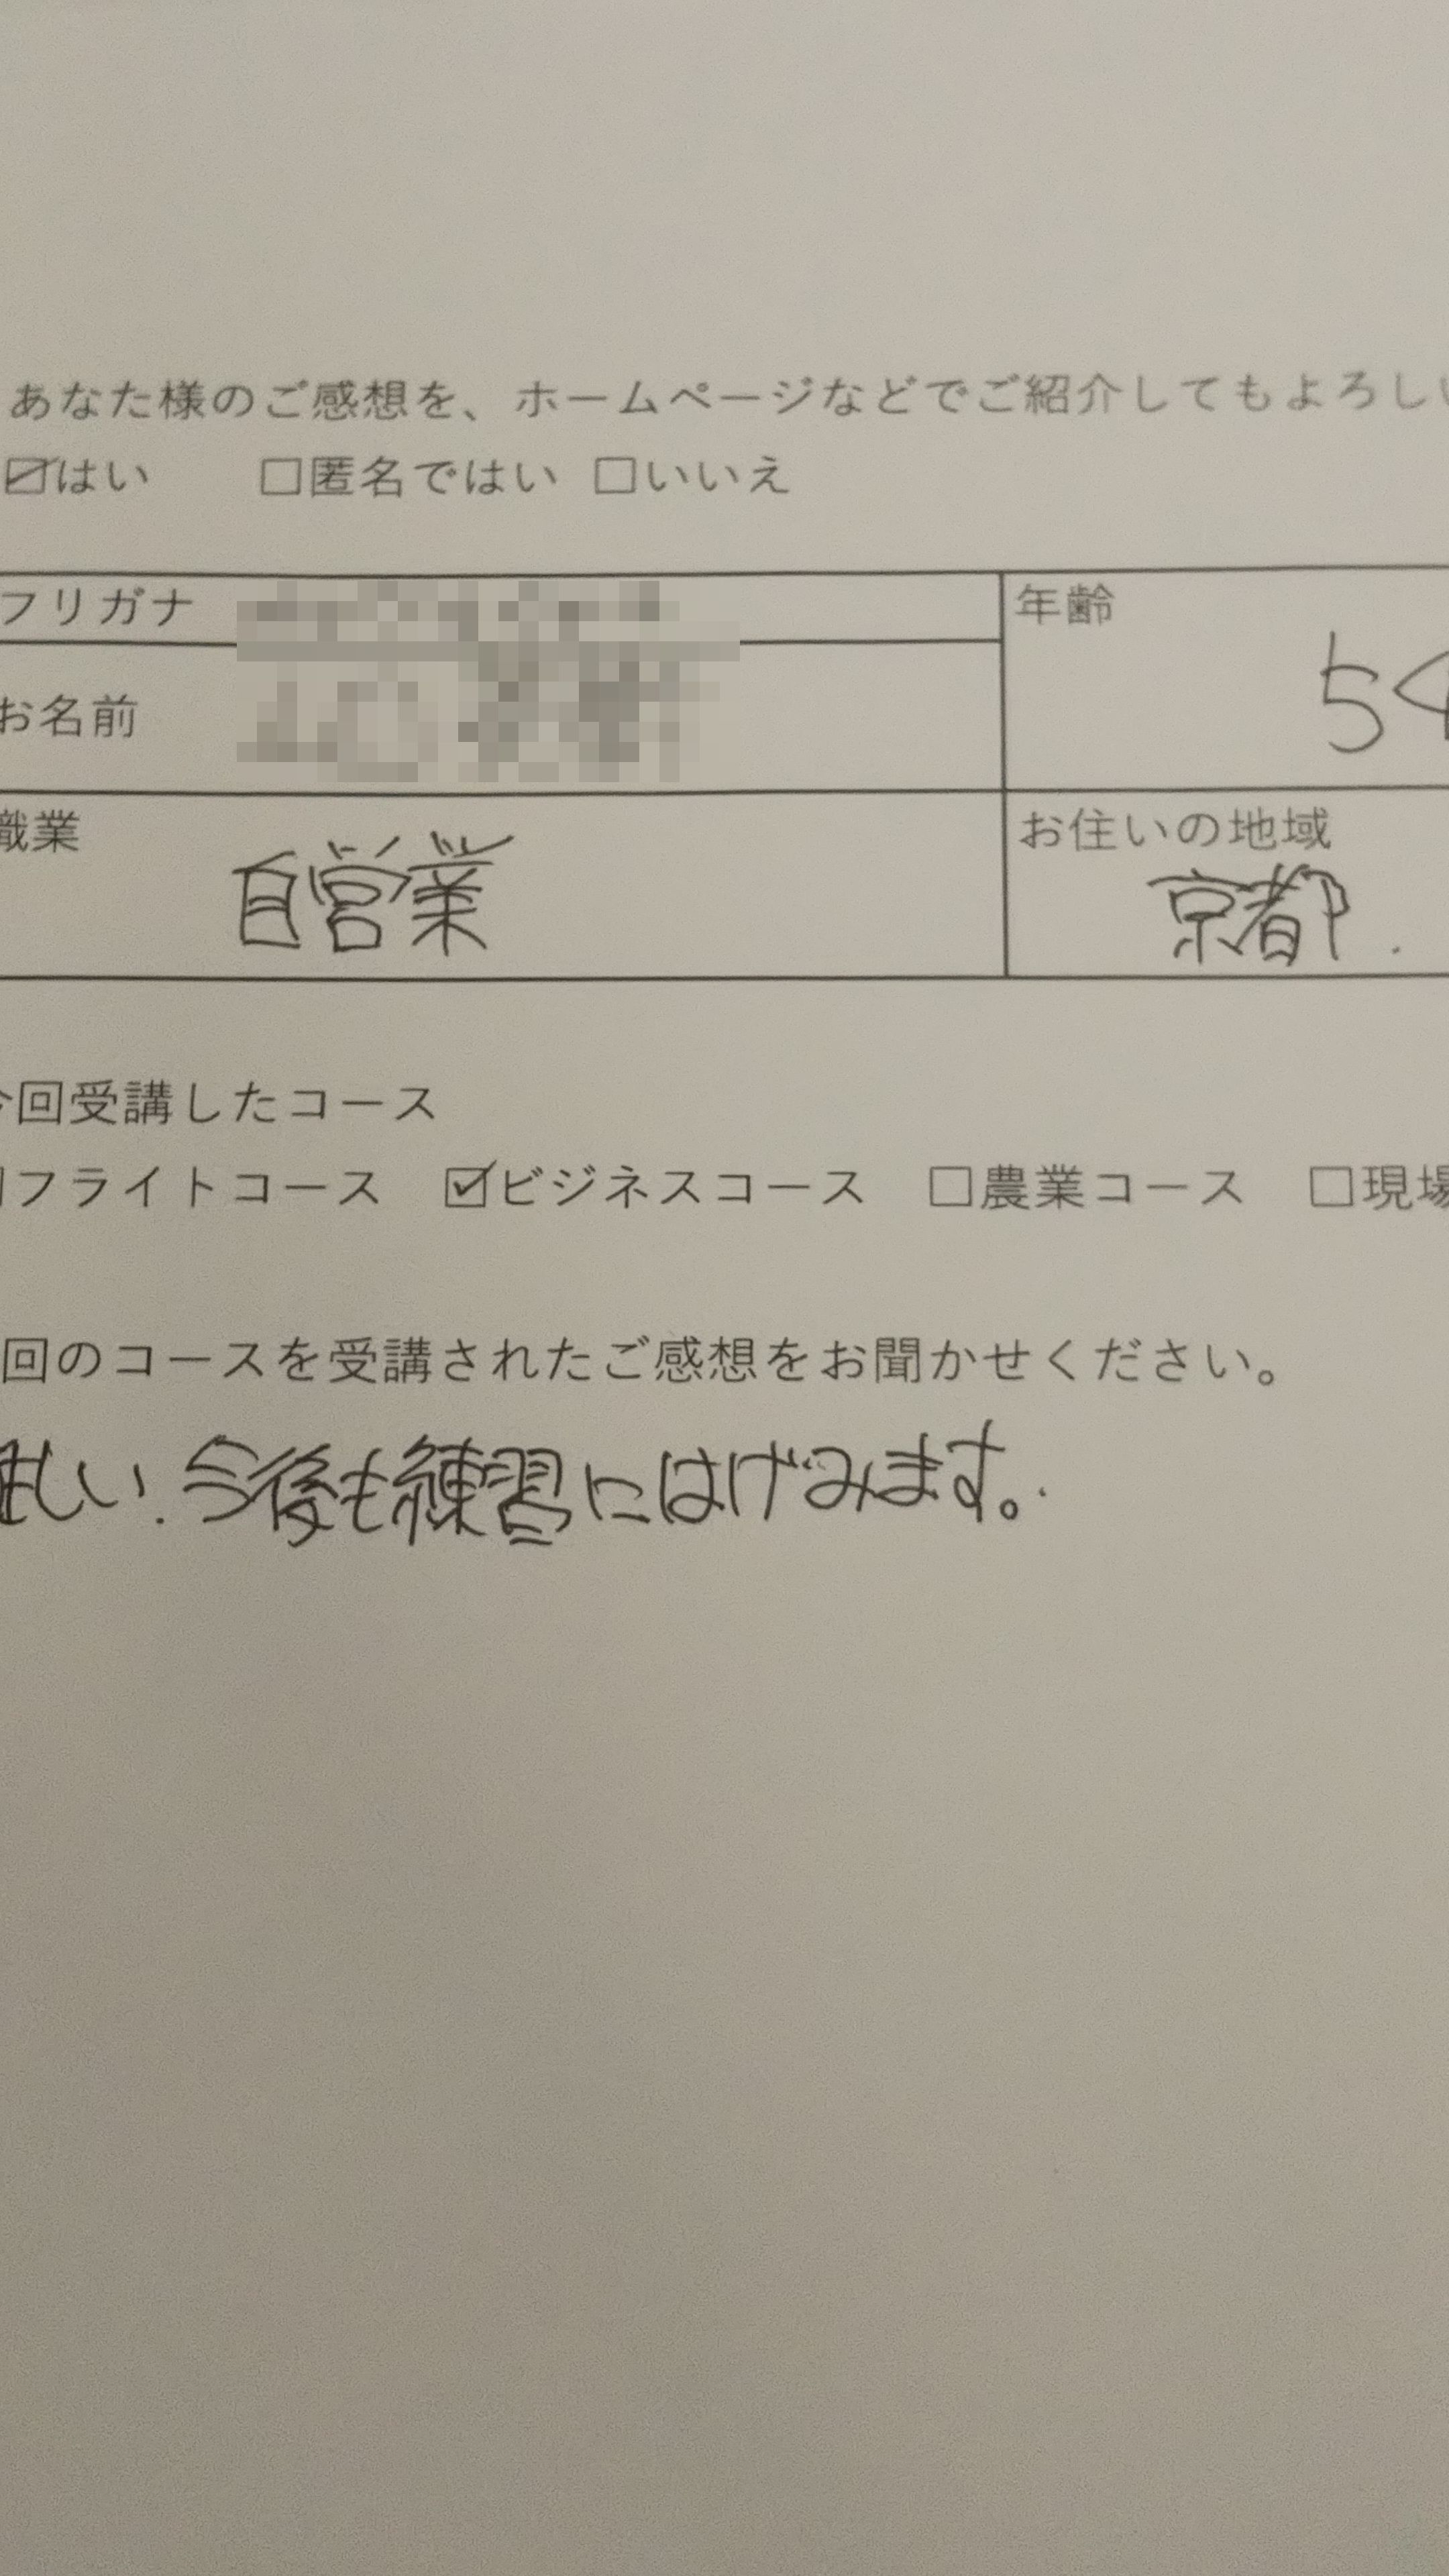 あなた様のご感想を、ホームページなどでご紹介してもよろしい
☑はい □匿名ではい □いいえ
フリガナ
年齢
54
お名前
職業
お住いの地域
自営業
京都.
今回受講したコース
フライトコース ☑ビジネスコース □農業コース □現場
回のコースを受講されたご感想をお聞かせください。
しい.今後も練習にはげみます。